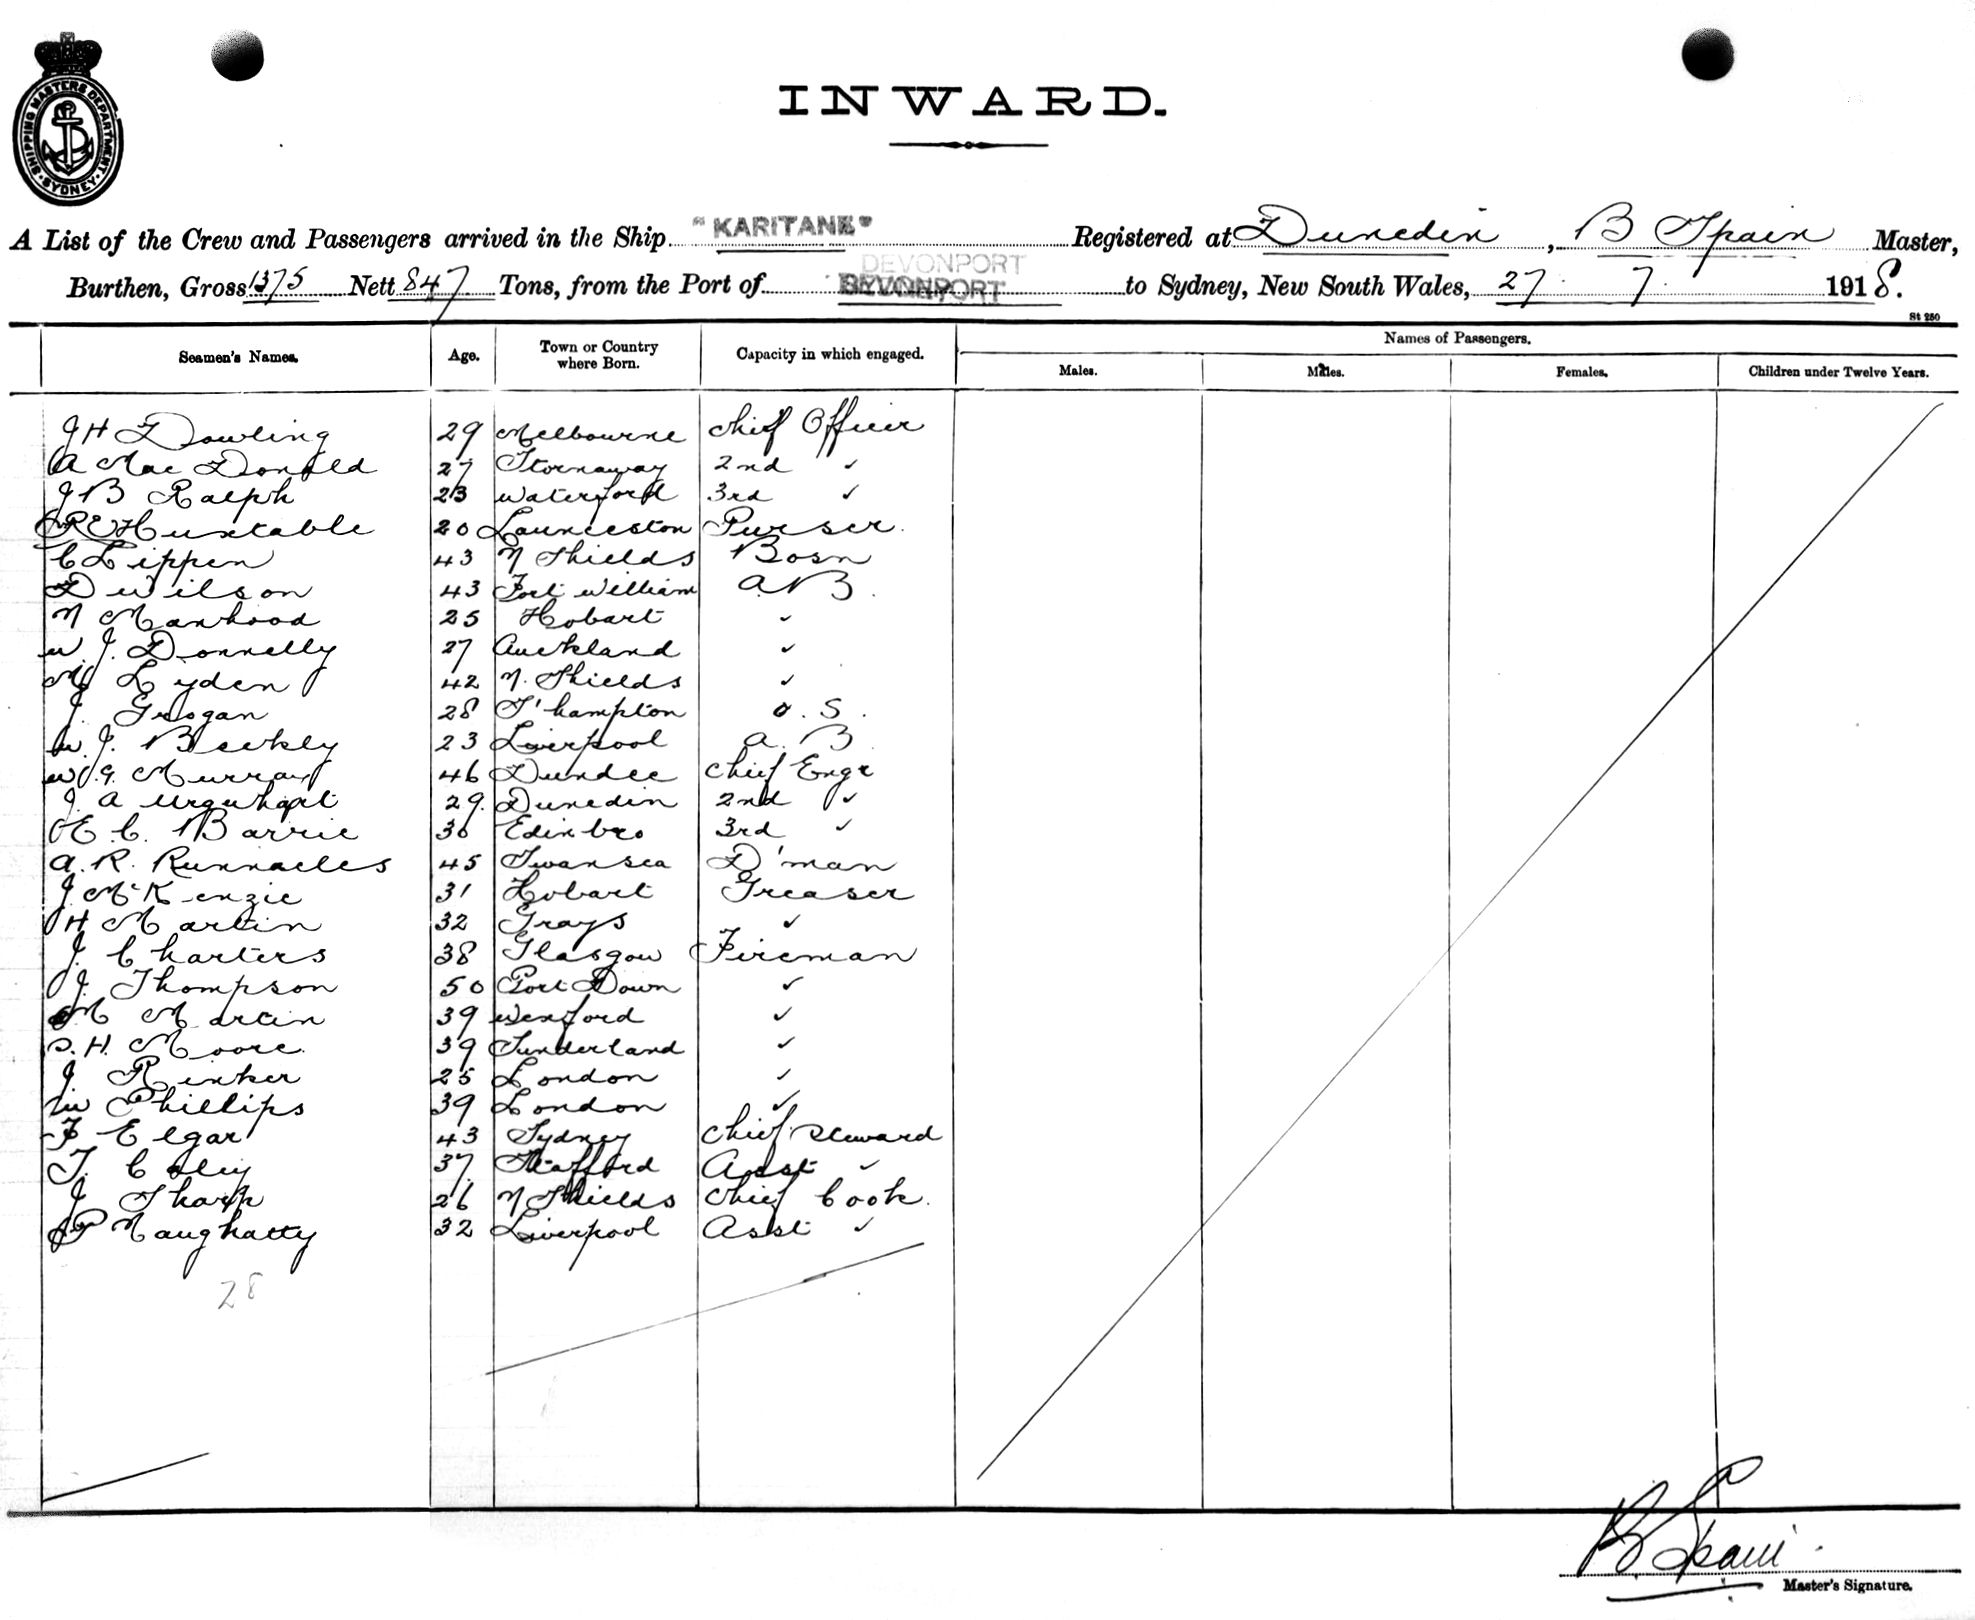 SHIPPING MASTERS DEPARTMENT · SYDNEY ·
INWARD.
A List of the Crew and Passengers arrived in the Ship "KARITANE" Registered at Dunedin, B Spain Master,
DEVONPORT
Burthen, Gross 1375 Nett 847 Tons, from the Port of DEVONPORT to Sydney, New South Wales, 27 7 1918.
St 250
Seamen's Names. Age. Town or Country where Born. Capacity in which engaged. Names of Passengers.
Males. Males. Females. Children under Twelve Years.
J H Dowling 29 Melbourne Chief Officer
A Mac Donald 27 Stornaway 2nd ✓
J B Ralph 23 Waterford 3rd ✓
Huxtable 20 Launceston Purser.
C Lippen 43 N Shields Bosn
D Wilson 43 Fort William A B.
N Manhood 25 Hobart ✓
W. J. Donnelly 27 Auckland ✓
M Lyden 42 N. Shields ✓
J. Grogan 28 S'hampton O. S.
W. J. 23 Liverpool A. B
W. G. Murray 46 Dundee Chief Engr
J. A Urquhart 29. Dunedin 2nd ✓
H. C. Barrie 30 Edinbro 3rd ✓
A. R. Runnacles 45 Swansea D'man
J McKenzie 31 Hobart Greaser
H Martin 32 Grays ✓
J. Charters 38 Glasgow Fireman
J. Thompson 50 Port Down ✓
M Martin 39 Wexford ✓
S. H. Moore. 39 Sunderland ✓
J. Rinker 25 London ✓
W Phillips 39 London ✓
F Elgar 43 Sydney Chief Steward
T. Coley 37 Stafford Asst ✓
J Sharp 26 N Shields Chief Cook.
Naughatty 32 Liverpool Asst ✓
28
B Spain
Master's Signature.